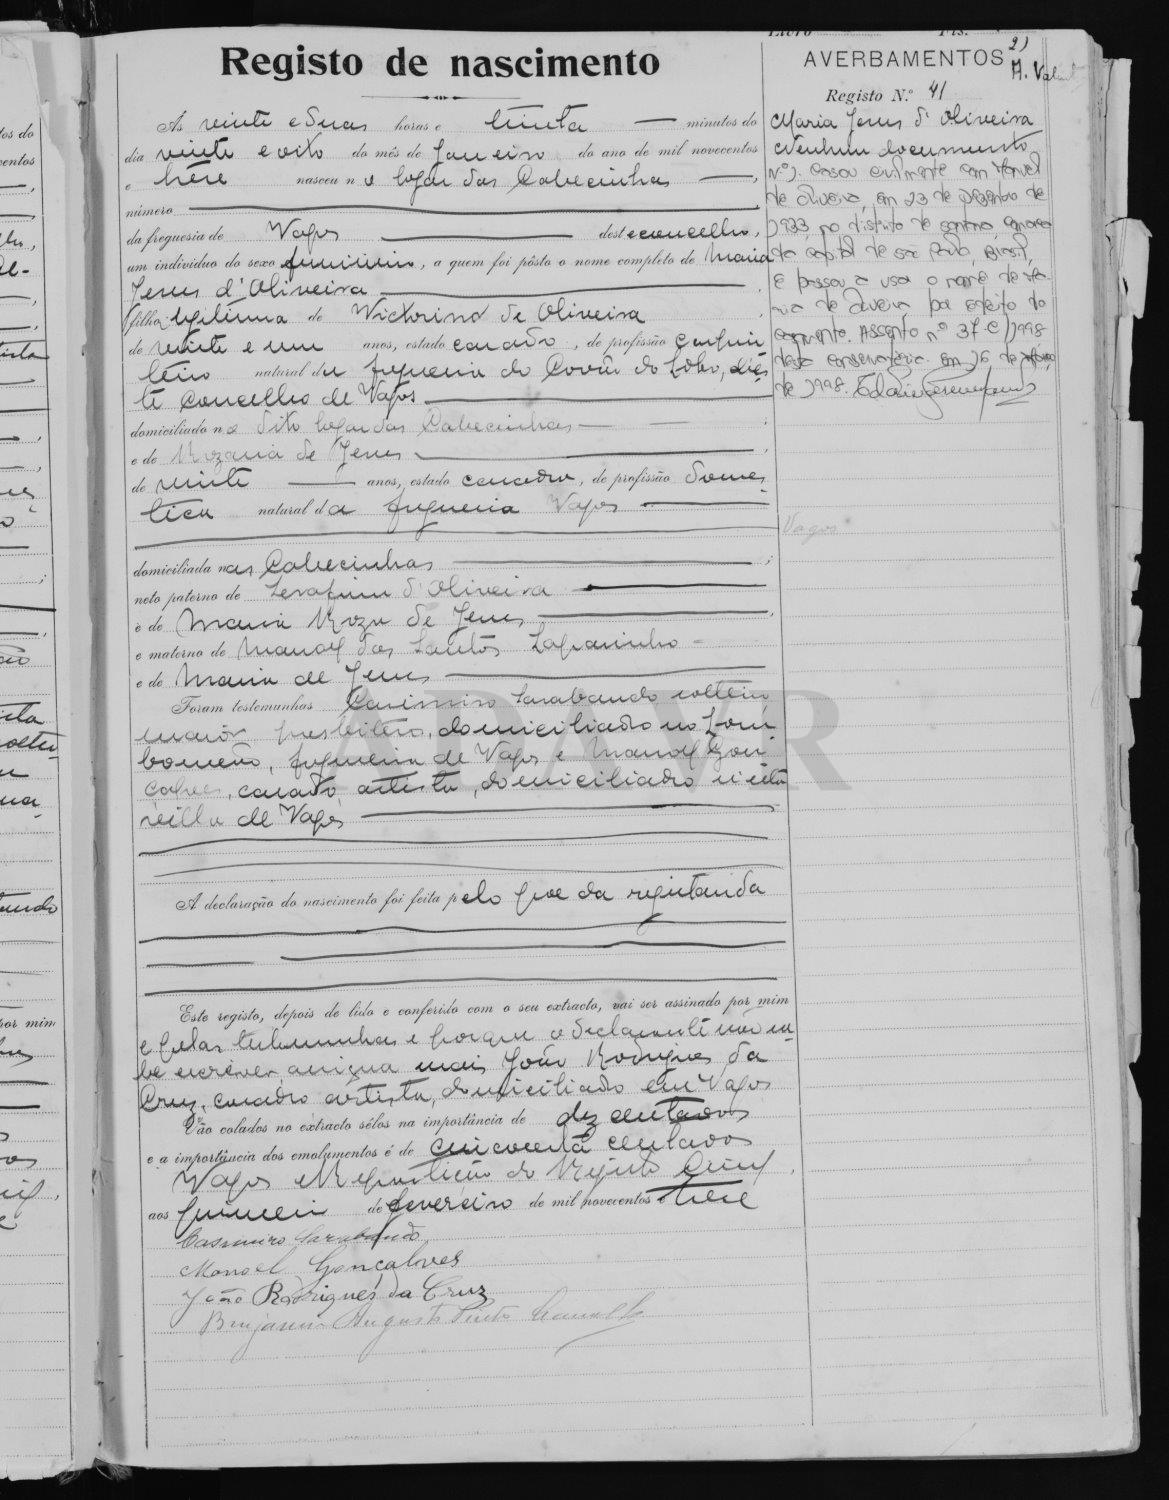 Registo de nascimento
Ás vinte e duas horas e trinta minutos do
dia vinte e oito do mês de Janeiro do ano de mil novecentos
e treze nasceu no logar das Cabecinhas
número
da freguesia de Vagos deste concelho,
um indivíduo do sexo feminino, a quem foi pôsto o nome completo de Maria
Jesus d'Oliveira
filha legitima de Victorino de Oliveira
de vinte e um anos, estado casado, de profissão carpin
teiro natural da freguesia do Covão do Lobo, dês
te concelho de Vagos
domiciliado no dito logar das Cabecinhas
e de Rozaria de Jesus
de vinte anos, estado casada, de profissão domes
tica natural da freguesia Vagos
domiciliada nas Cabecinhas
neto paterno de Serafim d'Oliveira
e de Maria Roza de Jesus
e materno de Manoel dos Santos
e de Maria de Jesus
Foram testemunhas Casimiro Sarabando solteiro
maior, presbitero, domiciliado no Lom
bomeão, freguesia de Vagos e Manoel Gon
çalves, casado, artista, domiciliado nesta
villa de Vagos
A declaração do nascimento foi feita pelo pae da registanda
Este registo, depois de lido e conferido com o seu extracto, vai ser assinado por mim
e pelas testemunhas e porque o declarante não sa
be escrever, assigna mais João Rodrigues da
Cruz, casado artista, domiciliado em Vagos
Vão colados no extracto sêlos na importância de dez centavos
e a importância dos emolumentos é de cincoenta centavos
Vagos e Repartição do Registo Civil,
aos primeiro de fevereiro de mil novecentos e treze
Casimiro Sarabando
Manoel Gonçalves
João Rodrigues da Cruz
Benjamin Augusto Pinto
AVERBAMENTOS
Registo N.º 41
Maria Jesus d'Oliveira
Nenhum documento
Nº 1. Casou civilmente com Manuel
de Oliveira, em 23 de Dezembro de
1933, no distrito de, comarca
da capital de São Paulo, Brasil,
e passou a usar o nome de Ma
ria de Oliveira, por efeito do
casamento. Assento nº 37-C/1998
desta conservatória. em 16 de
de 1998.
Vagos
ADAVR